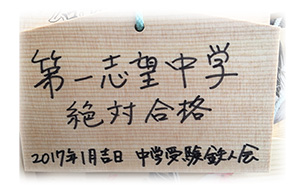 第一志望中学
絶対合格
2017年1月吉日 中学受験鉄人会